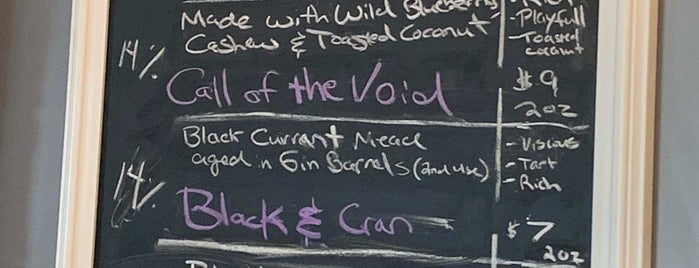 Made with Wild Blueberries
Cashew & Toasted Coconut
- Playfull
- Toasted
coconut
14%
Call of the Void
$9
2oz
Black Currant Mead
aged in Gin Barrels (2nd use)
- Viscous
- Tart
- Rich
14%
Black & Cran
$7
2oz